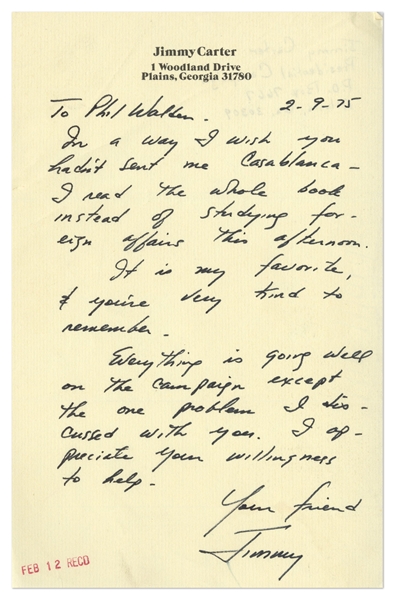 Jimmy Carter
1 Woodland Drive
Plains, Georgia 31780
To Phil Walden. 2-9-75
In a way I wish you
hadn't sent me Casablanca -
I read the whole book
instead of studying for-
eign affairs this afternoon.
It is my favorite,
& you're very kind to
remember.
Everything is going well
on the campaign except
the one problem I dis-
cussed with you. I ap-
preciate your willingness
to help.
Your friend
Jimmy
FEB 12 RECD